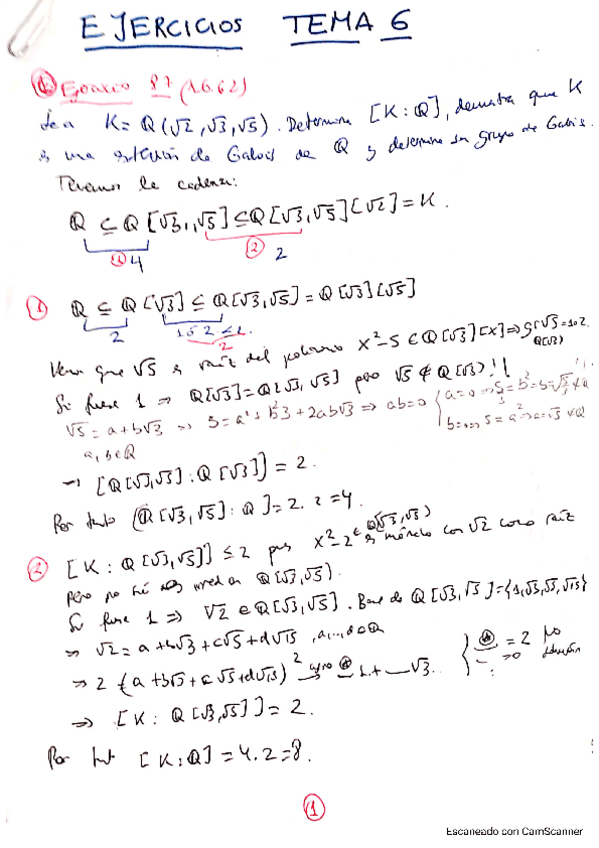 EJERCICIOS TEMA 6
① Ejercicio 87 (16.62)
Sea K = Q(√2, √3, √5). Determina [K:Q], demuestra que K
es una extensión de Galois de Q y determina su grupo de Galois.
Tenemos la cadena:
Q ⊆ Q[√3, √5] ⊆ Q[√3, √5][√2] = K.
① 4 ② 2
① Q ⊆ Q[√3] ⊆ Q[√3, √5] = Q[√3][√5]
2 2
que √5 es raíz del polinomio x²-5 ∈ Q[√3][x] ⇒ = 1 o 2
Q(√3)
Si fuese 1 ⇒ Q[√3] = Q[√3, √5] pero √5 ∉ Q(√3)!!
√5 = a + b√3 ⇒ 5 = a² + b²3 + 2ab√3 ⇒ ab = 0
a, b ∈ Q
→ [Q[√3, √5] : Q[√3]] = 2.
Por tanto [Q[√3, √5] : Q] = 2·2 = 4.
② [K : Q[√3, √5]] ≤ 2 pues x²-2 ∈ Q(√3, √5) es mónico con √2 como raíz
pero no sé si es irred en Q(√3, √5).
Si fuese 1 ⇒ √2 ∈ Q[√3, √5]. Base de Q[√3, √5] = {1, √3, √5, √15}
⇒ √2 = a + b√3 + c√5 + d√15, a,...,d ∈ Q
⇒ 2 = (a + b√3 + c√5 + d√15)² 1 + __√3.. = 2 No
= 0 solución
⇒ [K : Q[√3, √5]] = 2.
Por tanto [K:Q] = 4·2 = 8.
①
Escaneado con CamScanner